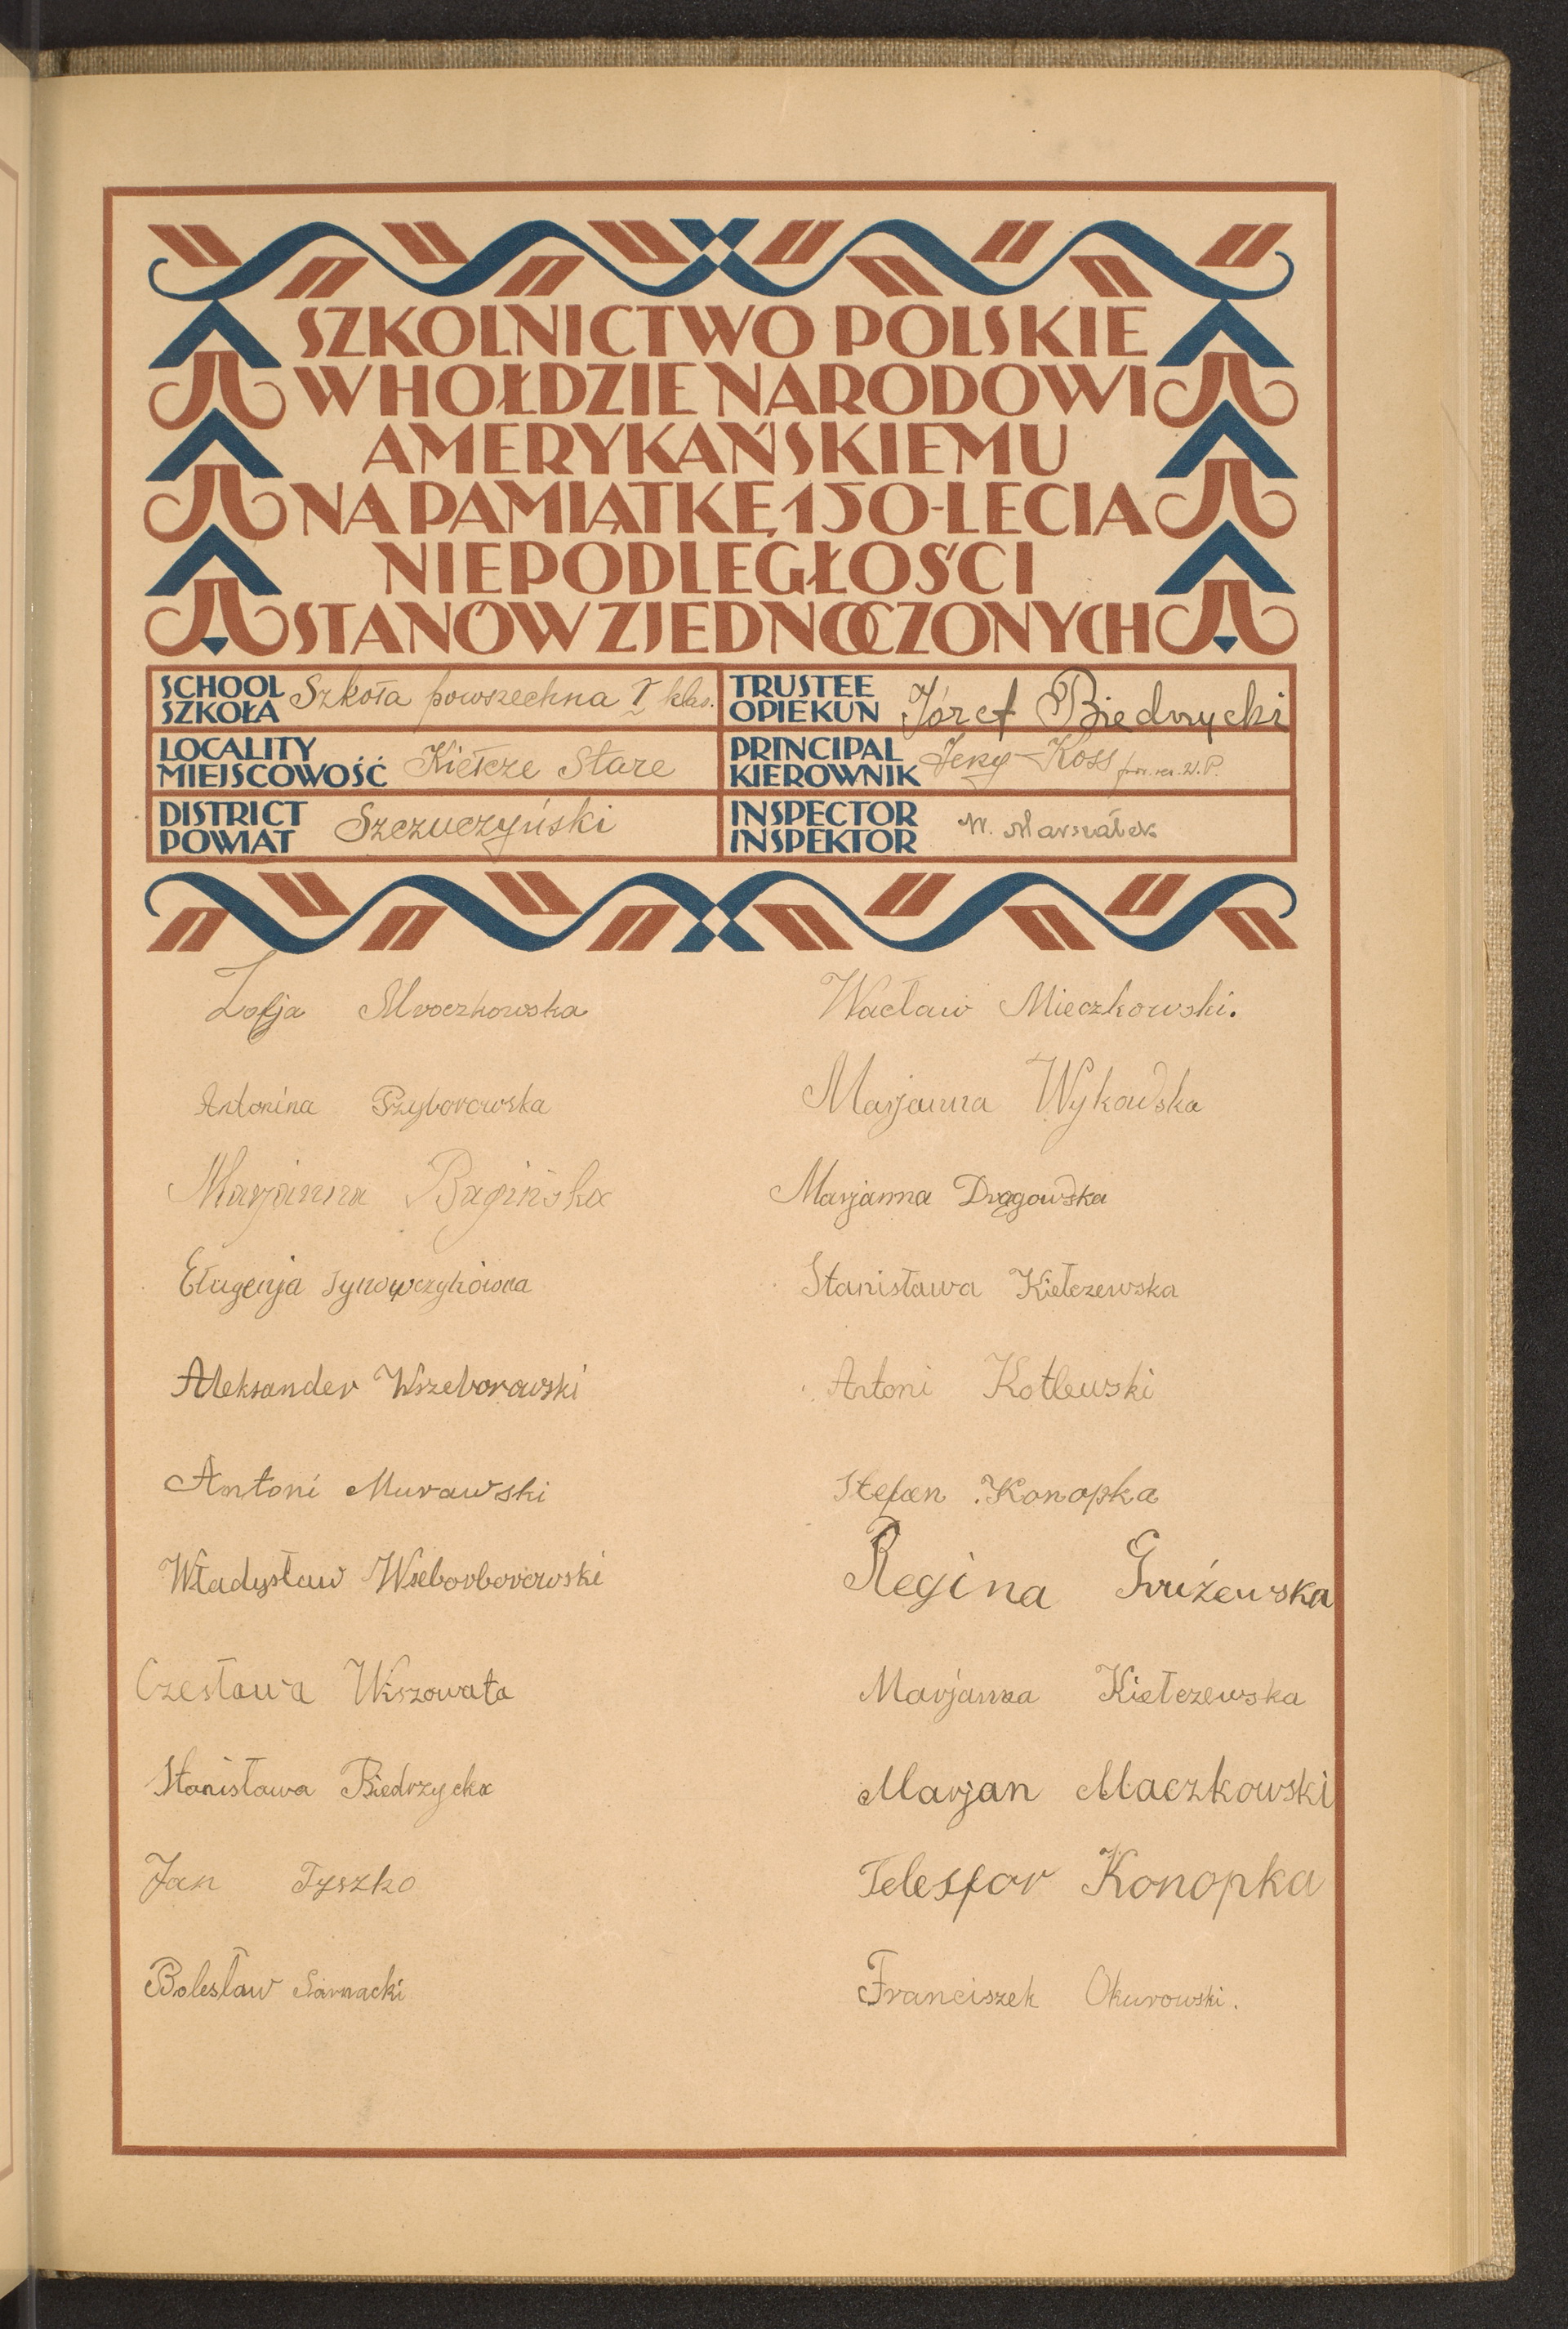 SZKOLNICTWO POLSKIE
W HOŁDZIE NARODOWI
AMERYKAŃSKIEMU
NA PAMIĄTKĘ 150-LECIA
NIEPODLEGŁOŚCI
STANÓW ZJEDNOCZONYCH
SCHOOL
SZKOŁA
Szkoła powszechna I klas.
TRUSTEE
OPIEKUN
Józef Biedrzycki
LOCALITY
MIEJSCOWOŚĆ
Kiełcze Stare
PRINCIPAL
KIEROWNIK
Jerzy Koss
DISTRICT
POWIAT
Szczuczyński
INSPECTOR
INSPEKTOR
W. Marszałek
Zofja Mroczkowska
Wacław Mieczkowski.
Antonina Przyborowska
Marjanna Wykowska
Marjanna Bagińska
Marjanna Drągowska
Eugenja
Stanisława Kiełczewska
Aleksander Wrzeborowski
Antoni Kotlewski
Antoni Murawski
Stefan Konopka
Władysław
Regina Grużewska
Czesława Wiszowata
Marjanna Kiełczewska
Stanisława Biedrzycka
Marjan Maczkowski
Jan Tyszko
Telesfor Konopka
Bolesław Sarnacki
Franciszek Okurowski.